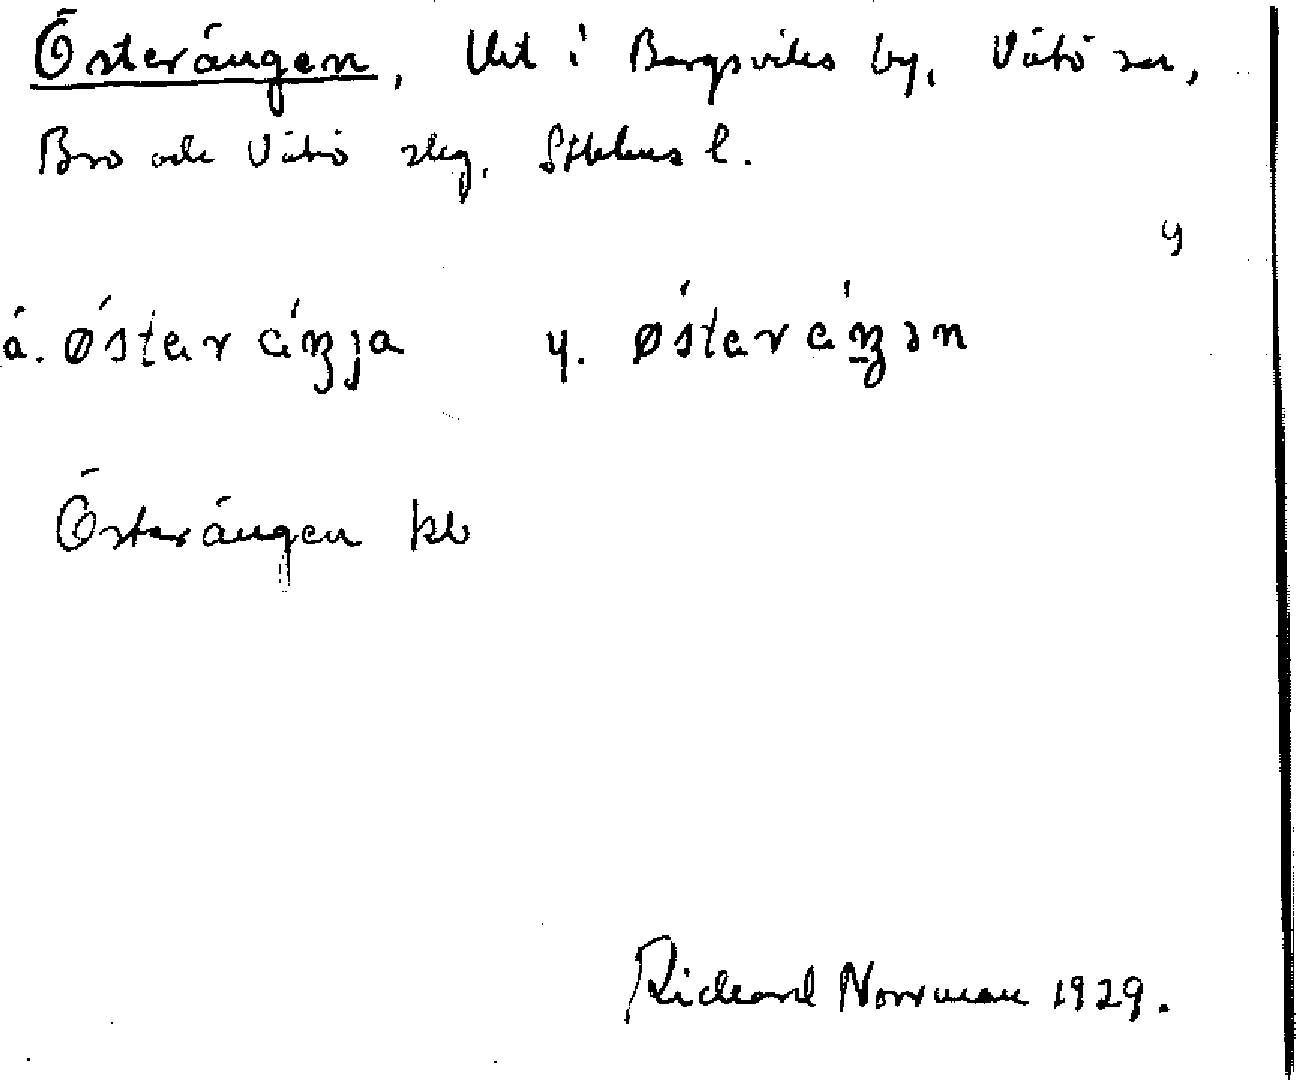 Österängen, Utt i Bergsviks by, Vätö sn,
Bro och Vätö skg. Sthlms l.
y
ä. østeräŋja y. østeräŋən
Österängen kb
Rickard Norrman 1929.